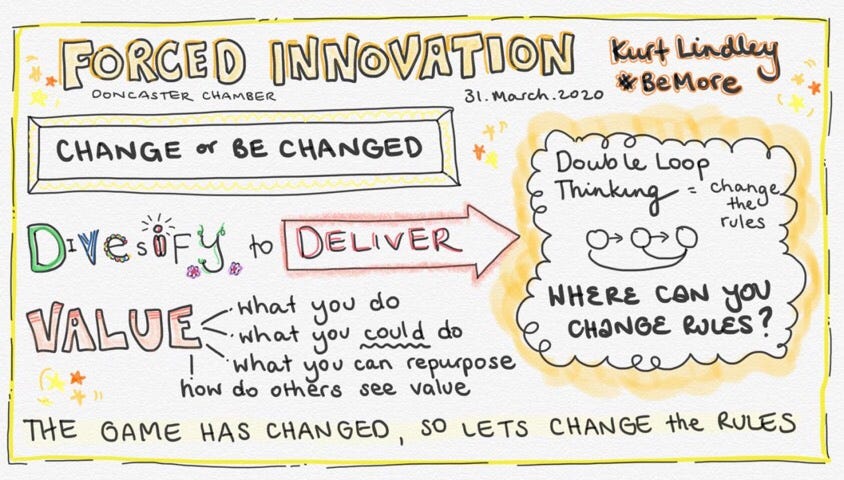 FORCED INNOVATION
DONCASTER CHAMBER
31. March. 2020
Kurt Lindley
#BeMore
CHANGE or BE CHANGED
Diversify to DELIVER
VALUE
what you do
what you could do
what you can repurpose
how do others see value
Double Loop
Thinking = change
the
rules
WHERE CAN YOU
CHANGE RULES?
THE GAME HAS CHANGED, SO LETS CHANGE the RULES